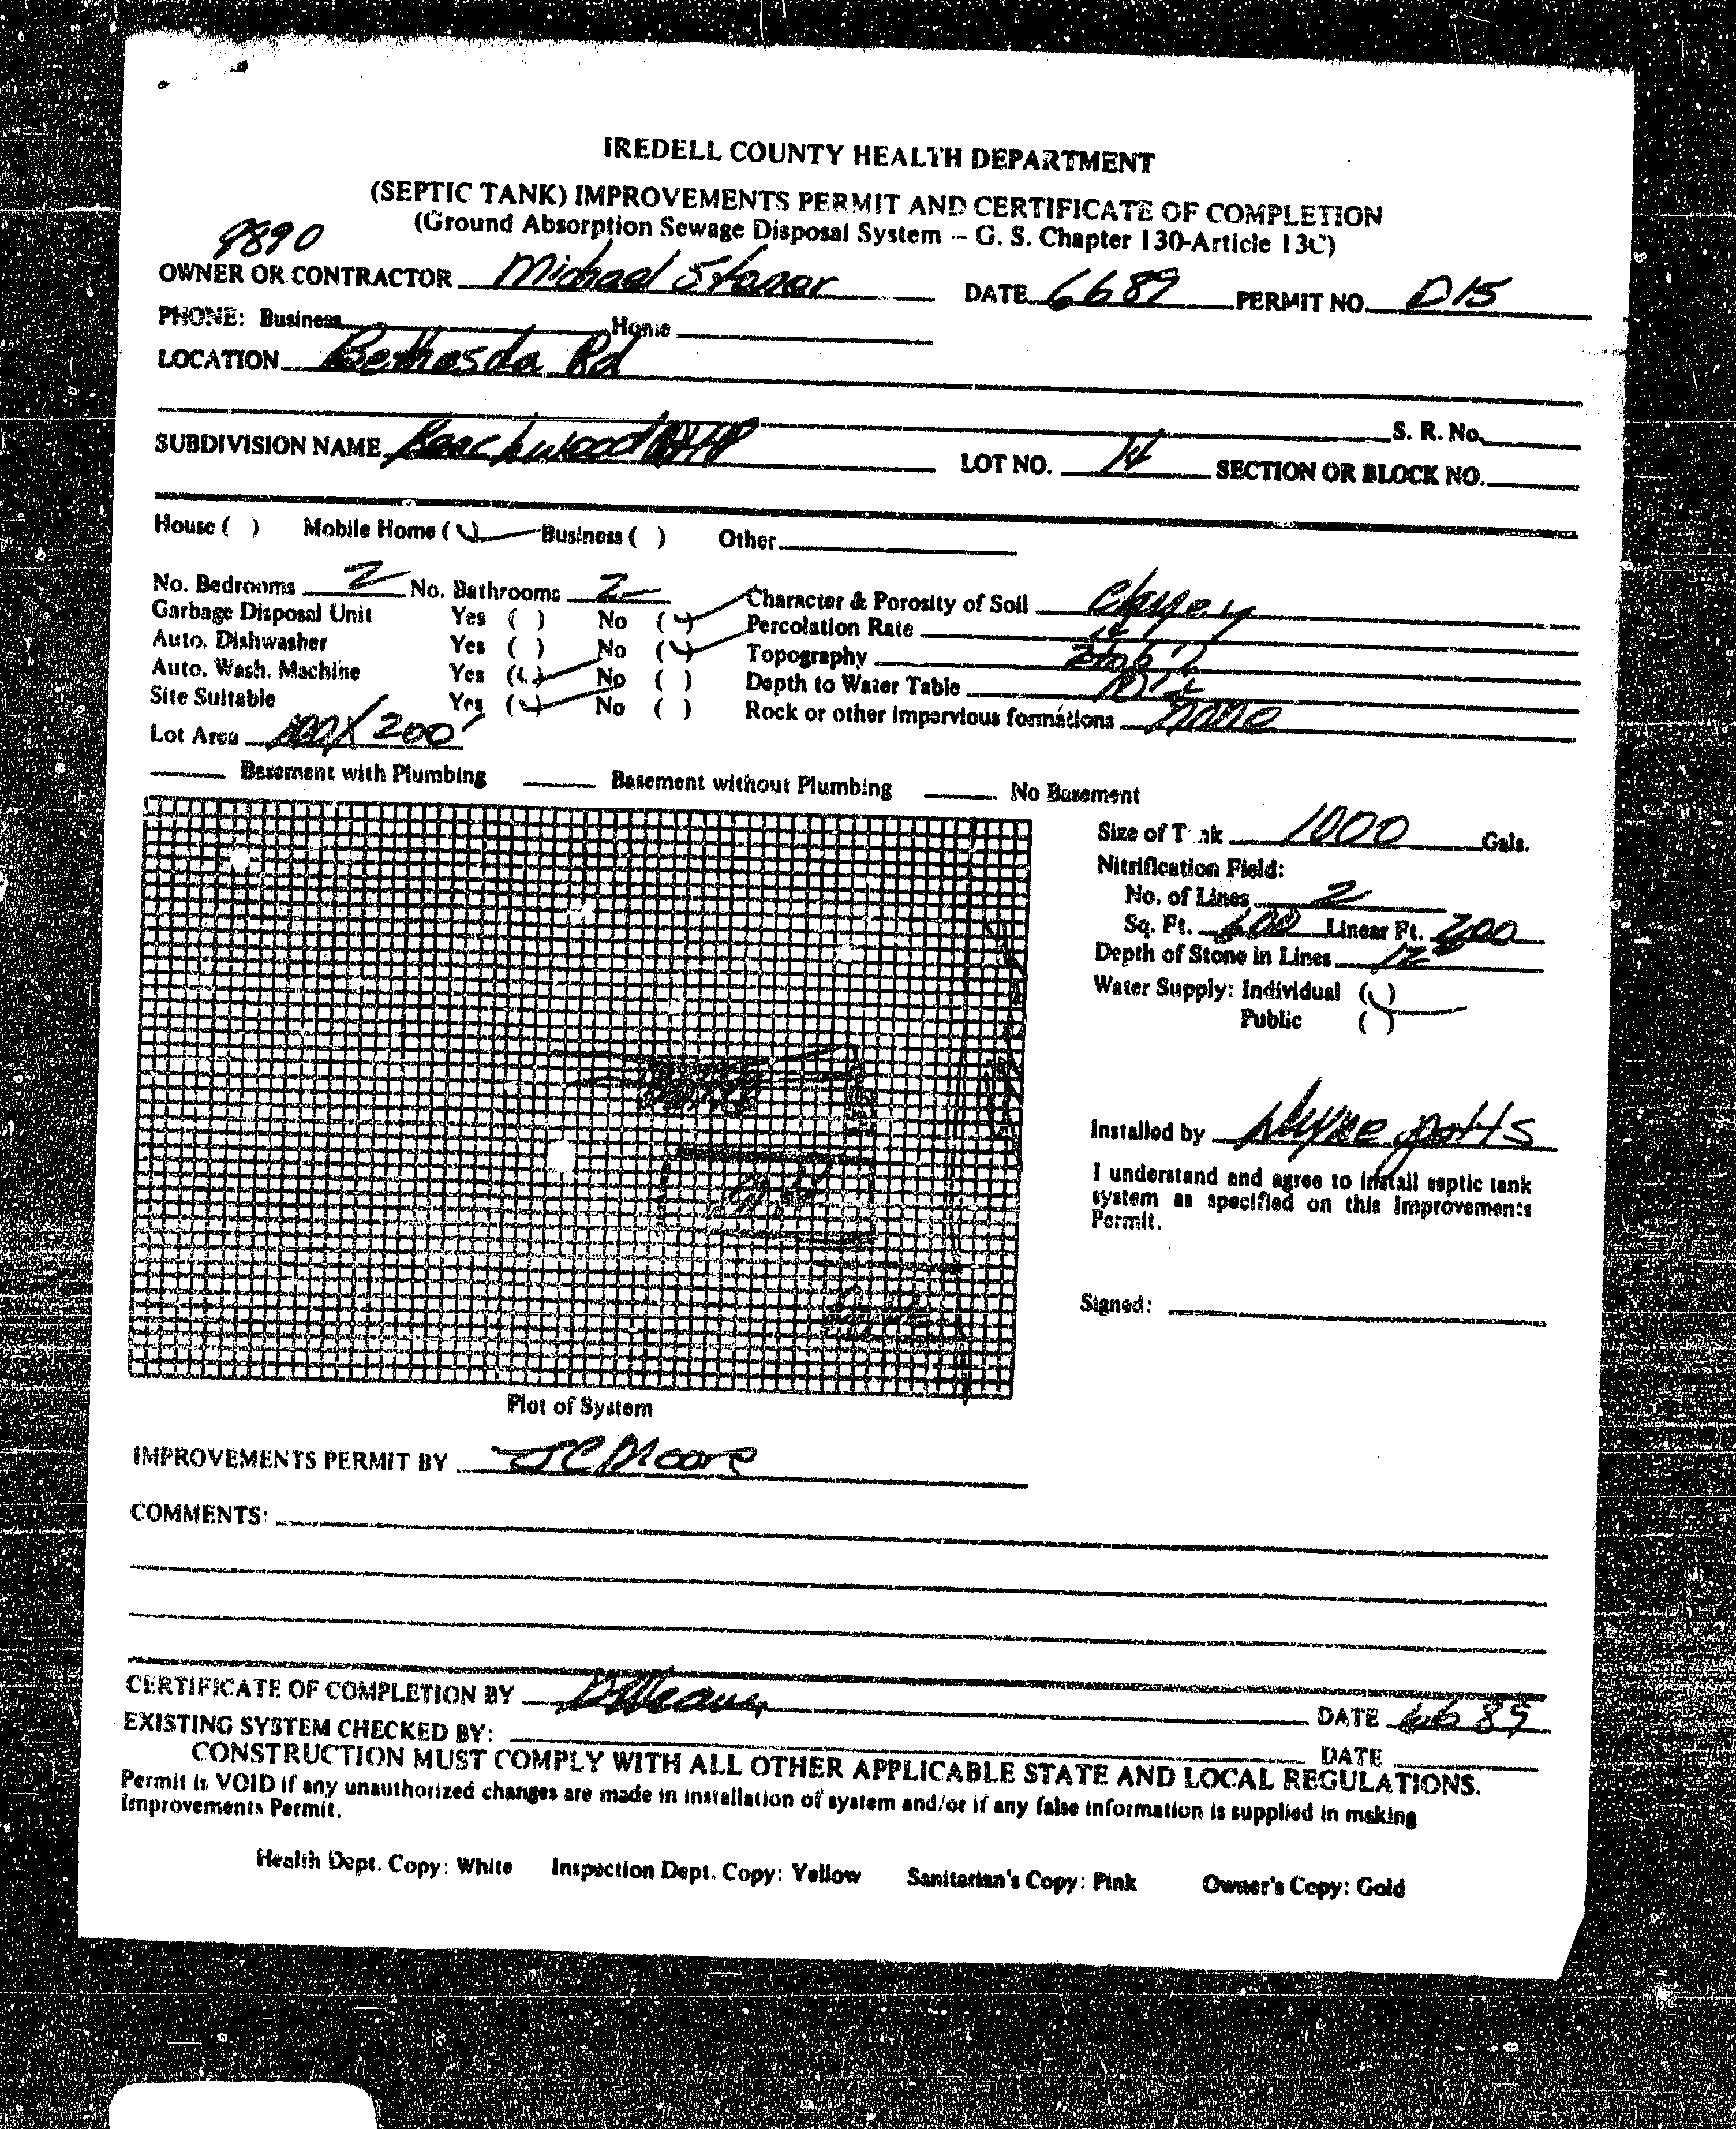 IREDELL COUNTY HEALTH DEPARTMENT
(SEPTIC TANK) IMPROVEMENTS PERMIT AND CERTIFICATE OF COMPLETION
(Ground Absorption Sewage Disposal System -- G. S. Chapter 130-Article 13C)
9890
OWNER OR CONTRACTOR Michael DATE 6 6 89 PERMIT NO. D15
PHONE: Business Home
LOCATION Bethesda Rd
S. R. No.
SUBDIVISION NAME Beachwood MHP LOT NO. 14 SECTION OR BLOCK NO.
House ( ) Mobile Home (✓) Business ( ) Other
No. Bedrooms 2 No. Bathrooms 2 Character & Porosity of Soil Clayey
Garbage Disposal Unit Yes ( ) No (✓) Percolation Rate
Auto. Dishwasher Yes ( ) No (✓) Topography
Auto. Wash. Machine Yes (✓) No ( ) Depth to Water Table
Site Suitable Yes (✓) No ( ) Rock or other impervious formations none
Lot Area 100 X 200'
Basement with Plumbing Basement without Plumbing No Basement
Size of Tank 1000 Gals.
Nitrification Field:
No. of Lines 2
Sq. Ft. 600 Linear Ft. 200
Depth of Stone in Lines 12
Water Supply: Individual (✓)
Public ( )
Installed by Wayne Potts
I understand and agree to install septic tank
system as specified on this Improvements
Permit.
Signed:
Plot of System
IMPROVEMENTS PERMIT BY JC Moore
COMMENTS:
CERTIFICATE OF COMPLETION BY DATE 6 6 89
EXISTING SYSTEM CHECKED BY: DATE
CONSTRUCTION MUST COMPLY WITH ALL OTHER APPLICABLE STATE AND LOCAL REGULATIONS.
Permit is VOID if any unauthorized changes are made in installation of system and/or if any false information is supplied in making
Improvements Permit.
Health Dept. Copy: White Inspection Dept. Copy: Yellow Sanitarian's Copy: Pink Owner's Copy: Gold